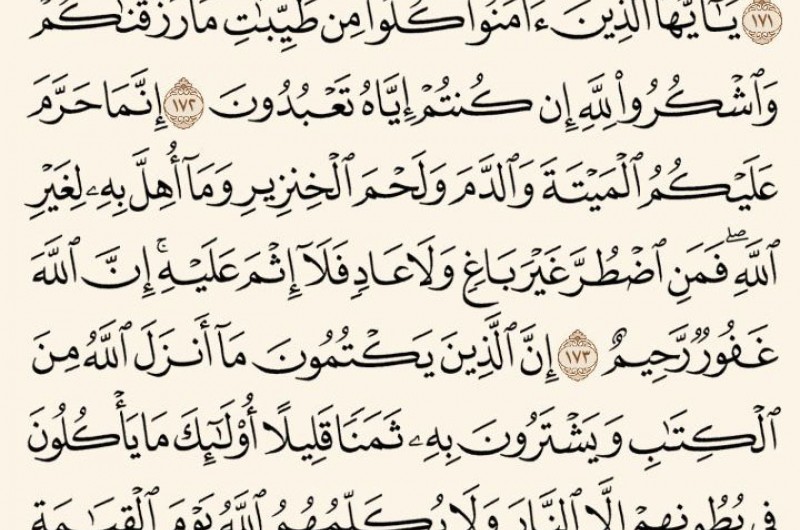 ١٧١ يَـٰٓأَيُّهَا ٱلَّذِينَ ءَامَنُوا۟ كُلُوا۟ مِن طَيِّبَـٰتِ مَا رَزَقْنَـٰكُمْ
وَٱشْكُرُوا۟ لِلَّهِ إِن كُنتُمْ إِيَّاهُ تَعْبُدُونَ ١٧٢ إِنَّمَا حَرَّمَ
عَلَيْكُمُ ٱلْمَيْتَةَ وَٱلدَّمَ وَلَحْمَ ٱلْخِنزِيرِ وَمَآ أُهِلَّ بِهِۦ لِغَيْرِ
ٱللَّهِ ۖ فَمَنِ ٱضْطُرَّ غَيْرَ بَاغٍ وَلَا عَادٍ فَلَآ إِثْمَ عَلَيْهِ ۚ إِنَّ ٱللَّهَ
غَفُورٌ رَّحِيمٌ ١٧٣ إِنَّ ٱلَّذِينَ يَكْتُمُونَ مَآ أَنزَلَ ٱللَّهُ مِنَ
ٱلْكِتَـٰبِ وَيَشْتَرُونَ بِهِۦ ثَمَنًا قَلِيلًا أُو۟لَـٰٓئِكَ مَا يَأْكُلُونَ
فِى بُطُونِهِمْ إِلَّا ٱلنَّارَ وَلَا يُكَلِّمُهُمُ ٱللَّهُ يَوْمَ ٱلْقِيَـٰمَةِ